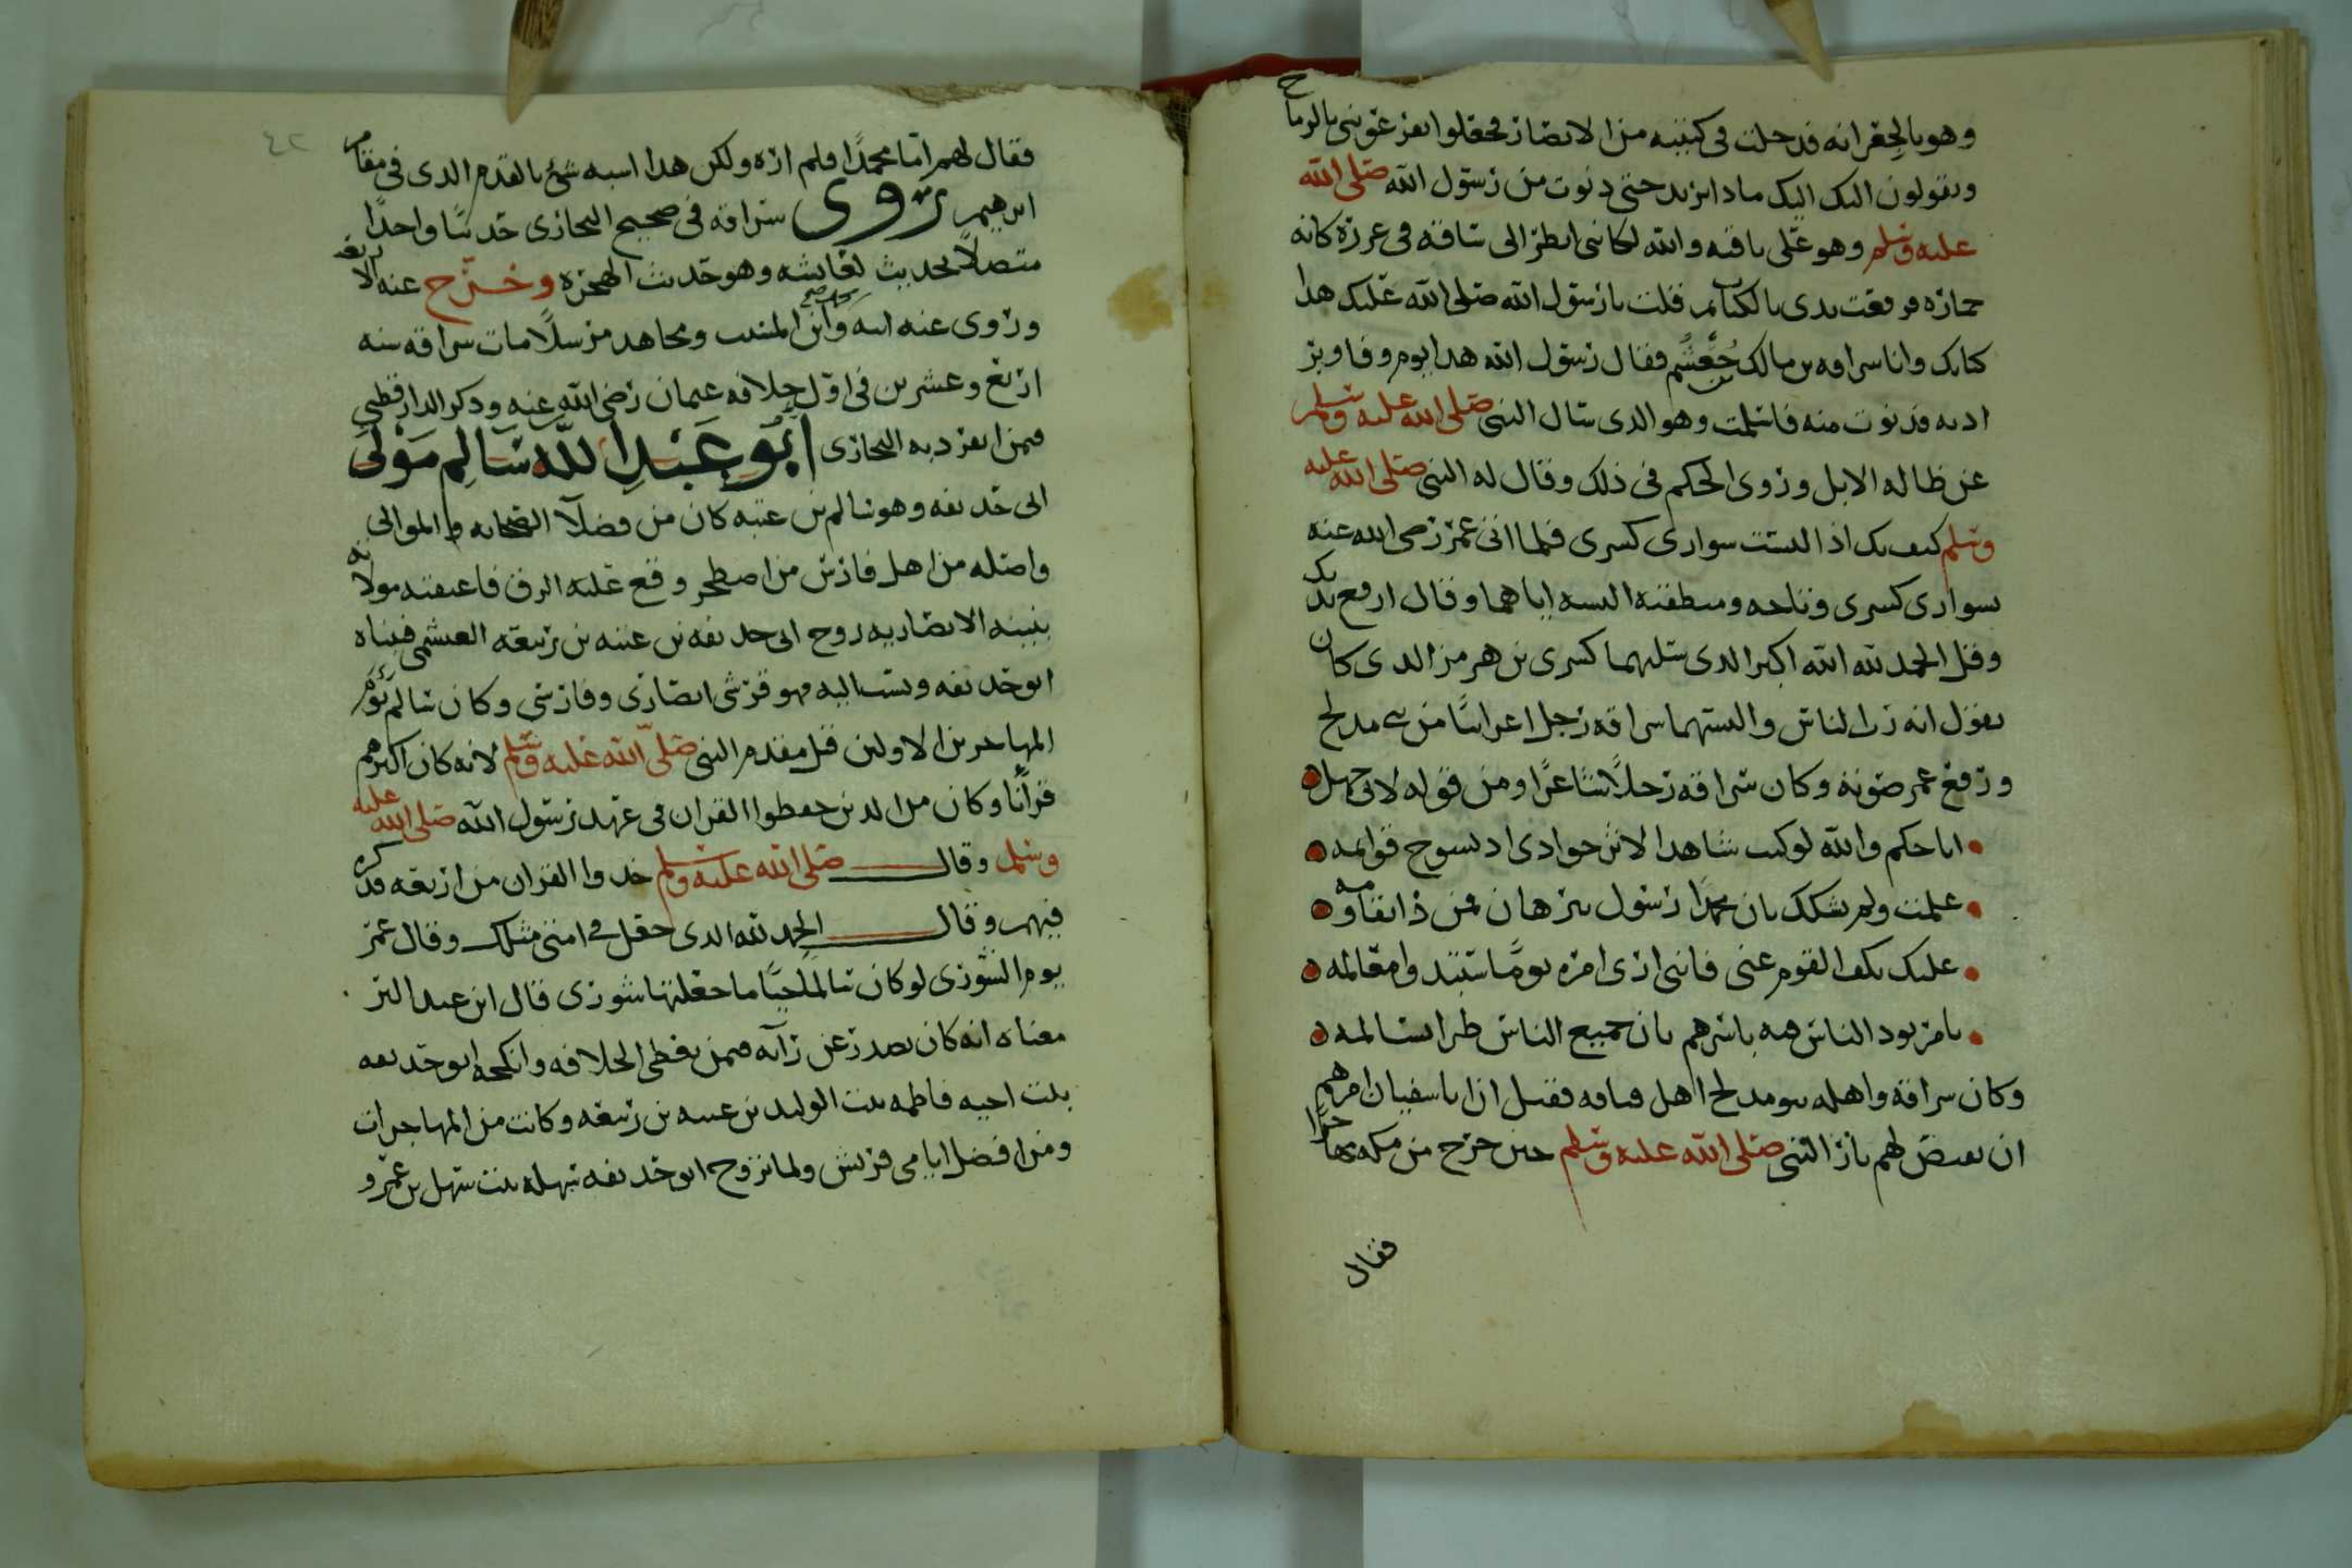 وهو بالجعرانه فدخلت في كتيبه من الانصار فجعلوا يقرعونني بالرماح
ويقولون اليك اليك ماذا تريد حتى دنوت من رسول الله صلى الله
عليه وسلم وهو على ناقته والله لكاني انظر الى ساقه في غرزه كانه
جماره فرفعت يدي بالكتاب ثم قلت يا رسول الله صلى الله عليك هذا
كتابك وانا سراقه بن مالك بن جعشم فقال رسول الله هذا يوم وفا وبر
ادنه فدنوت منه فاسلمت وهو الذي سال النبي صلى الله عليه وسلم
عن ضاله الابل وروى الحكم في ذلك وقال له النبي صلى الله عليه
وسلم كيف بك اذا لبست سواري كسرى فلما اتي عمر رضي الله عنه
بسواري كسرى وتاجه ومنطقته البسه اياهما وقال ارفع يديك
وقل الحمد لله الله اكبر الذي سلبهما كسرى بن هرمز الذي كان
يقول انه رب الناس والبستهما سراقه رجل اعرابيا من بني مدلج
ورفع عمر صوته وكان سراقه رجلا شاعرا ومن قوله لابي جهل
اباحكم والله لو كنت شاهدا لامر جوادي اذ تسوخ قوائمه
علمت ولم تشكك بان محمدا رسول ببرهان فمن ذا يقاومه
عليك بكف القوم عني فانني ارى امره يوما ستبدوا معالمه
بامر يود الناس فيه باسرهم بان جميع الناس طرا يسالمه
وكان سراقة واهله بنو مدلج اهل قيافه فقيل ان اباسفيان امرهم
ان يقتص لهم باثر النبي صلى الله عليه وسلم حين خرج من مكه مهاجرا
فقال
فقال لهم اما محمدا فلم اره ولكن هذا اشبه شئ بالقدم الذي في مقام
ابرهيم روى سراقه في صحيح البخاري حديثا واحدا
متصلا بحديث لعايشه وهو حديث الهجره وخرج عنه الاربعه
وروى عنه ابنه وابن المسيب ومجاهد مرسلا مات سراقه سنه
اربع وعشرين في اول خلافه عثمان رضي الله عنه وذكر الدارقطني
فيمن انفرد به البخاري ابو عبد الله سالم مولى
ابي حذيفه وهو سالم بن عتبه كان من فضلآ الصحابه والموالي
واصله من اهل فارس من اصطخر وقع عليه الرق فاعتقته مولاته
بثينه الانصاريه زوج ابي حذيفه بن عتبه بن ربيعه العبشمي فتبناه
ابو حذيفه ونسب اليه فهو قرشي انصاري وفارسي وكان سالم يؤم
المهاجرين الاولين قبل مقدم النبي صلى الله عليه وسلم لانه كان اكثرهم
قرآنا وكان من الذين حفظوا القران في عهد رسول الله صلى الله عليه
وسلم وقال صلى الله عليه وسلم خذوا القران من اربعه فذكره
فيهم وقال الحمد لله الذي جعل في امتي مثلك وقال عمر
يوم الشورى لو كان سالم حيا ما جعلتها شورى قال ابن عبد البر
معناه انه كان يصدر عن رآيه فيمن يعطي الخلافه وانكحه ابو حذيفه
بنت اخيه فاطمه بنت الوليد بن عتبه بن ربيعه وكانت من المهاجرات
ومن افضل ايامى قريش ولما تزوج ابو حذيفه سهله بنت سهل بن عمرو